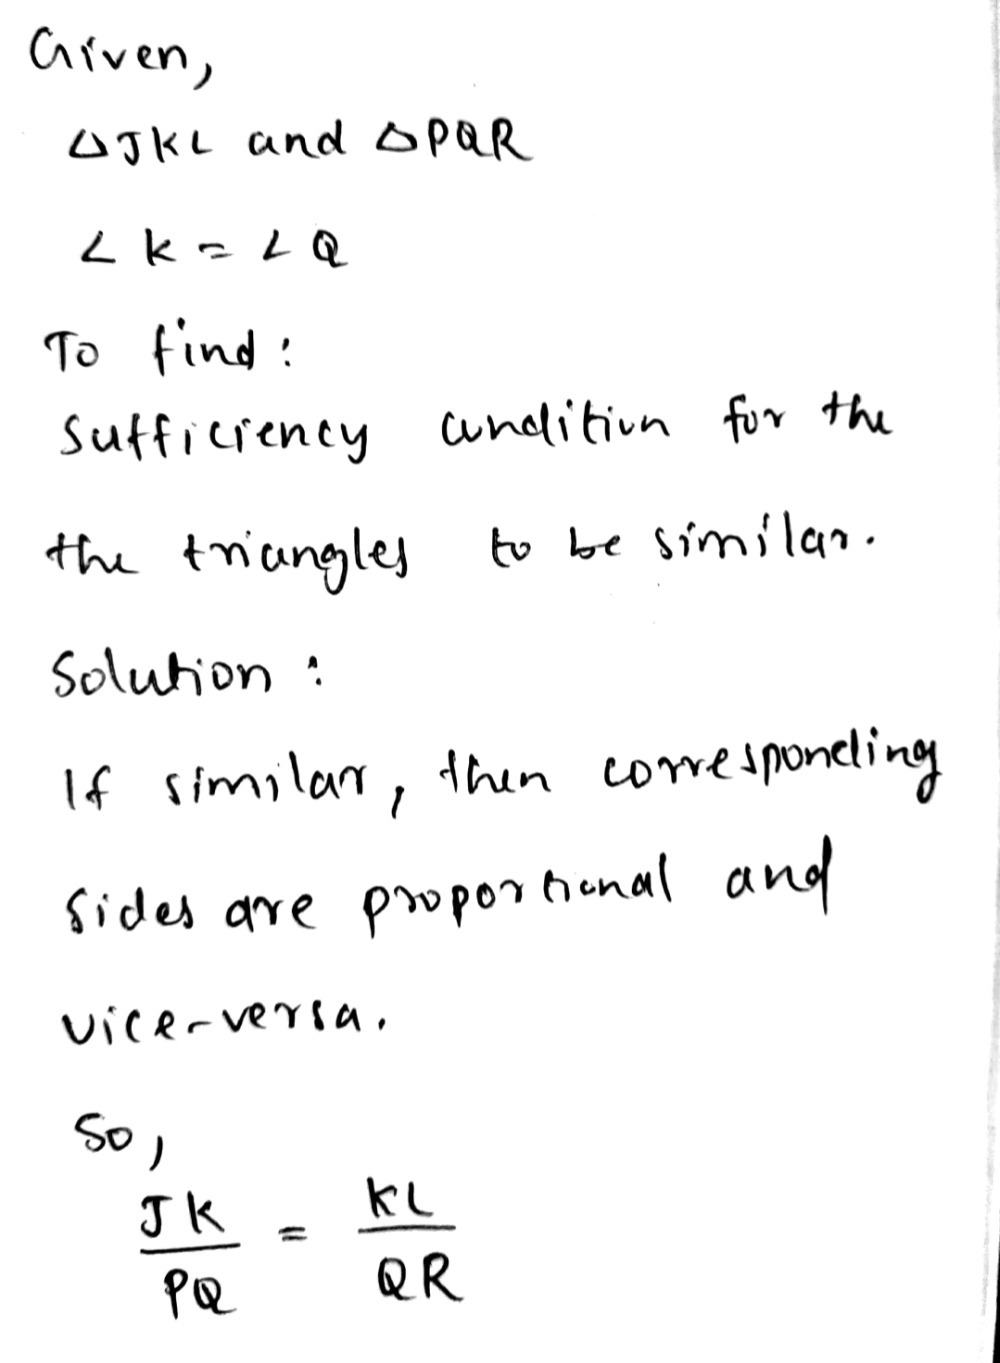 Given,
△JKL and △PQR
∠K = ∠Q
To find:
Sufficiency condition for the
the triangles to be similar.
Solution:
If similar, then corresponding
sides are proportional and
vice-versa.
So,
JK/PQ = KL/QR